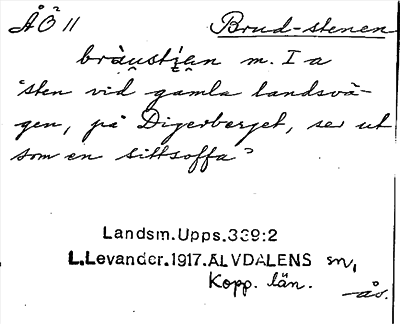 ÅÖ² 11 Brud-stenen
bràustįen m. I a
"sten vid gamla landsvä-
gen, på Digerberget, ser ut
som en sittsoffa"
Landsm.Upps.339:2
L.Levander.1917.ÄLVDALENS sn,
Kopp. län.
-ås.